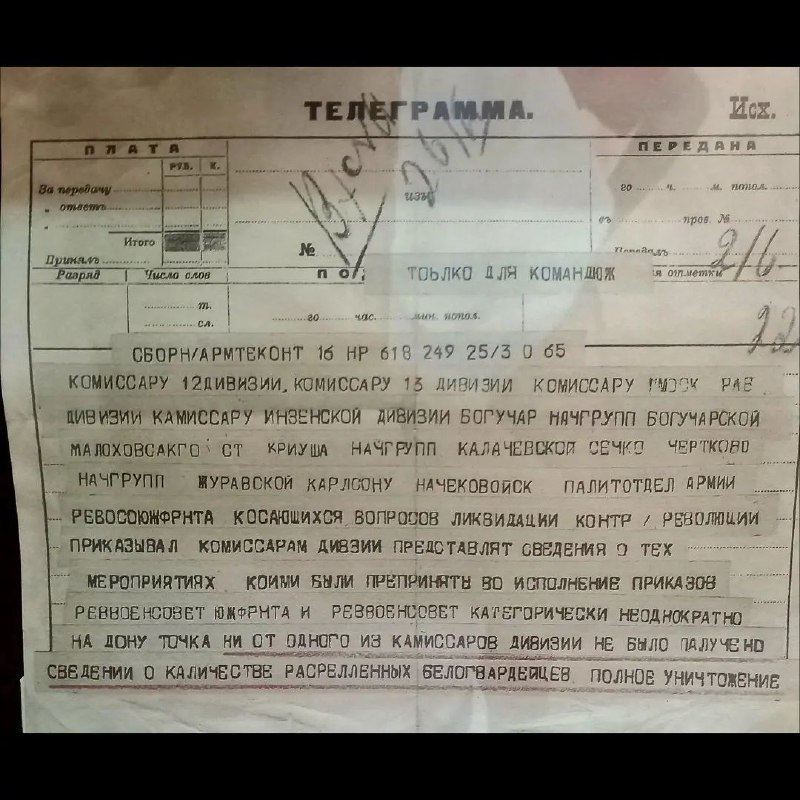 ТЕЛЕГРАММА.
Исх.
ПЛАТА
ПЕРЕДАНА
РУБ. К.
За передачу
го ч. м. попол.
„ ответъ
изъ
„
въ пров. №
Итого
№
Принялъ
Передалъ
Разрядъ
Число словъ
ПО
ТОЬЛКО ДЛЯ КОМАНДЮЖ
отметки
2/6
т.
сл.
го час. мин. попол.
22
СБОРН/АРМТЕКОНТ 16 НР 618 249 25/3 0 65
КОМИССАРУ 12ДИВИЗИИ, КОМИССАРУ 13 ДИВИЗИИ КОМИССАРУ РАБ
ДИВИЗИИ КАМИССАРУ ИНЗЕНСКОЙ ДИВИЗИИ БОГУЧАР НАЧГРУПП БОГУЧАРСКОЙ
МАЛОХОВСАКГО СТ КРИУША НАЧГРУПП КАЛАЧЕВСКОЙ СЕЧКО ЧЕРТКОВО
НАЧГРУПП ЖУРАВСКОЙ КАРЛСОНУ НАЧЕКОВОЙСК ПАЛИТОТДЕЛ АРМИИ
РЕВОСОЮЖФРНТА КОСАЮЩИХСЯ ВОПРОСОВ ЛИКВИДАЦИИ КОНТР / РЕВОЛЮЦИИ
ПРИКАЗЫВАЛ КОМИССАРАМ ДИВЗИИ ПРЕДСТАВЛЯТ СВЕДЕНИЯ О ТЕХ
МЕРОПРИЯТИЯХ КОИМИ БЫЛИ ПРЕПРИНЯТЫ ВО ИСПОЛНЕНИЕ ПРИКАЗОВ
РЕВВОЕНСОВЕТ ЮЖФРНТА И РЕВВОЕНСОВЕТ КАТЕГОРИЧЕСКИ НЕОДНОКРАТНО
НА ДОНУ ТОЧКА НИ ОТ ОДНОГО ИЗ КАМИССАРОВ ДИВИЗИИ НЕ БЫЛО ПАЛУЧЕНО
СВЕДЕНИИ О КАЛИЧЕСТВЕ РАСРЕЛЛЕННЫХ БЕЛОГВАРДЕЙЦЕВ ПОЛНОЕ УНИЧТОЖЕНИЕ